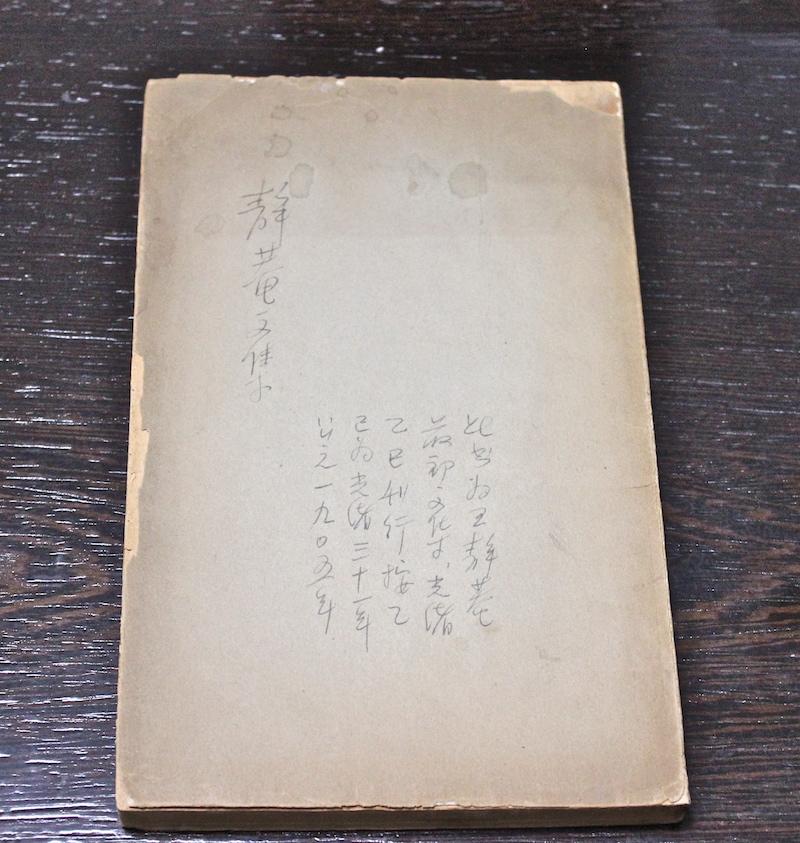 靜菴文集
此书为王靜菴
最初文集，光緒
乙巳刊行按乙
巳为光緒三十一年
公元一九〇五年